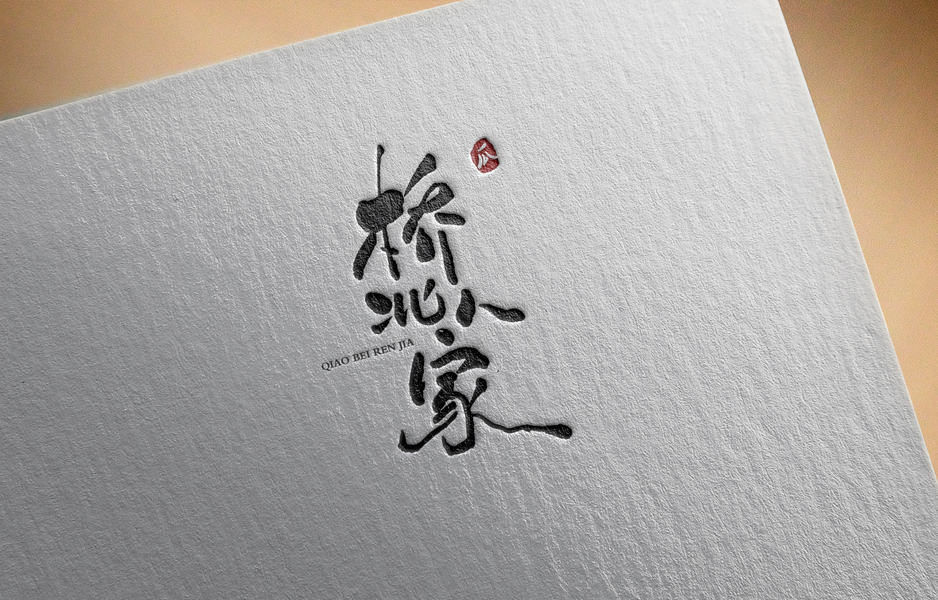 桥
北人
家
QIAO BEI REN JIA